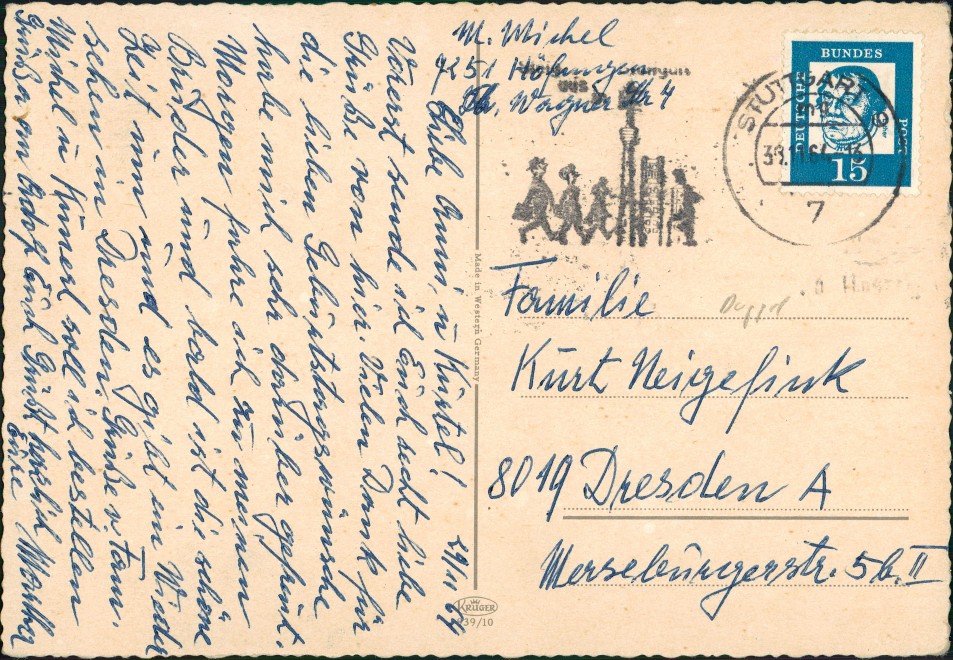 M. Michel
7251
Wagner Str 4
BUNDES
DEUTSCHE
POST
15
STUTTGART
7
Familie
Kurt Neigefink
8019 Dresden A
Merseburgerstr. 5b. II
Made in Western Germany
KRÜGER
939/10
29/11 64
Liebe Anni, u Kurtel!
Vorerst sende ich Euch recht liebe
Grüße von hier. Vielen Dank für
die lieben Geburtstagswünsche
habe mich sehr darüber gefreut.
Morgen fahre ich zu meinen
Brüder und bald ist die schöne
Zeit um und es gibt ein Wieder
sehen in Dresden. Grüße v. Fam.
Michel u. soll ich bestellen
Grüße von Adolf Euch Grüßt herzlich Martha
Eure